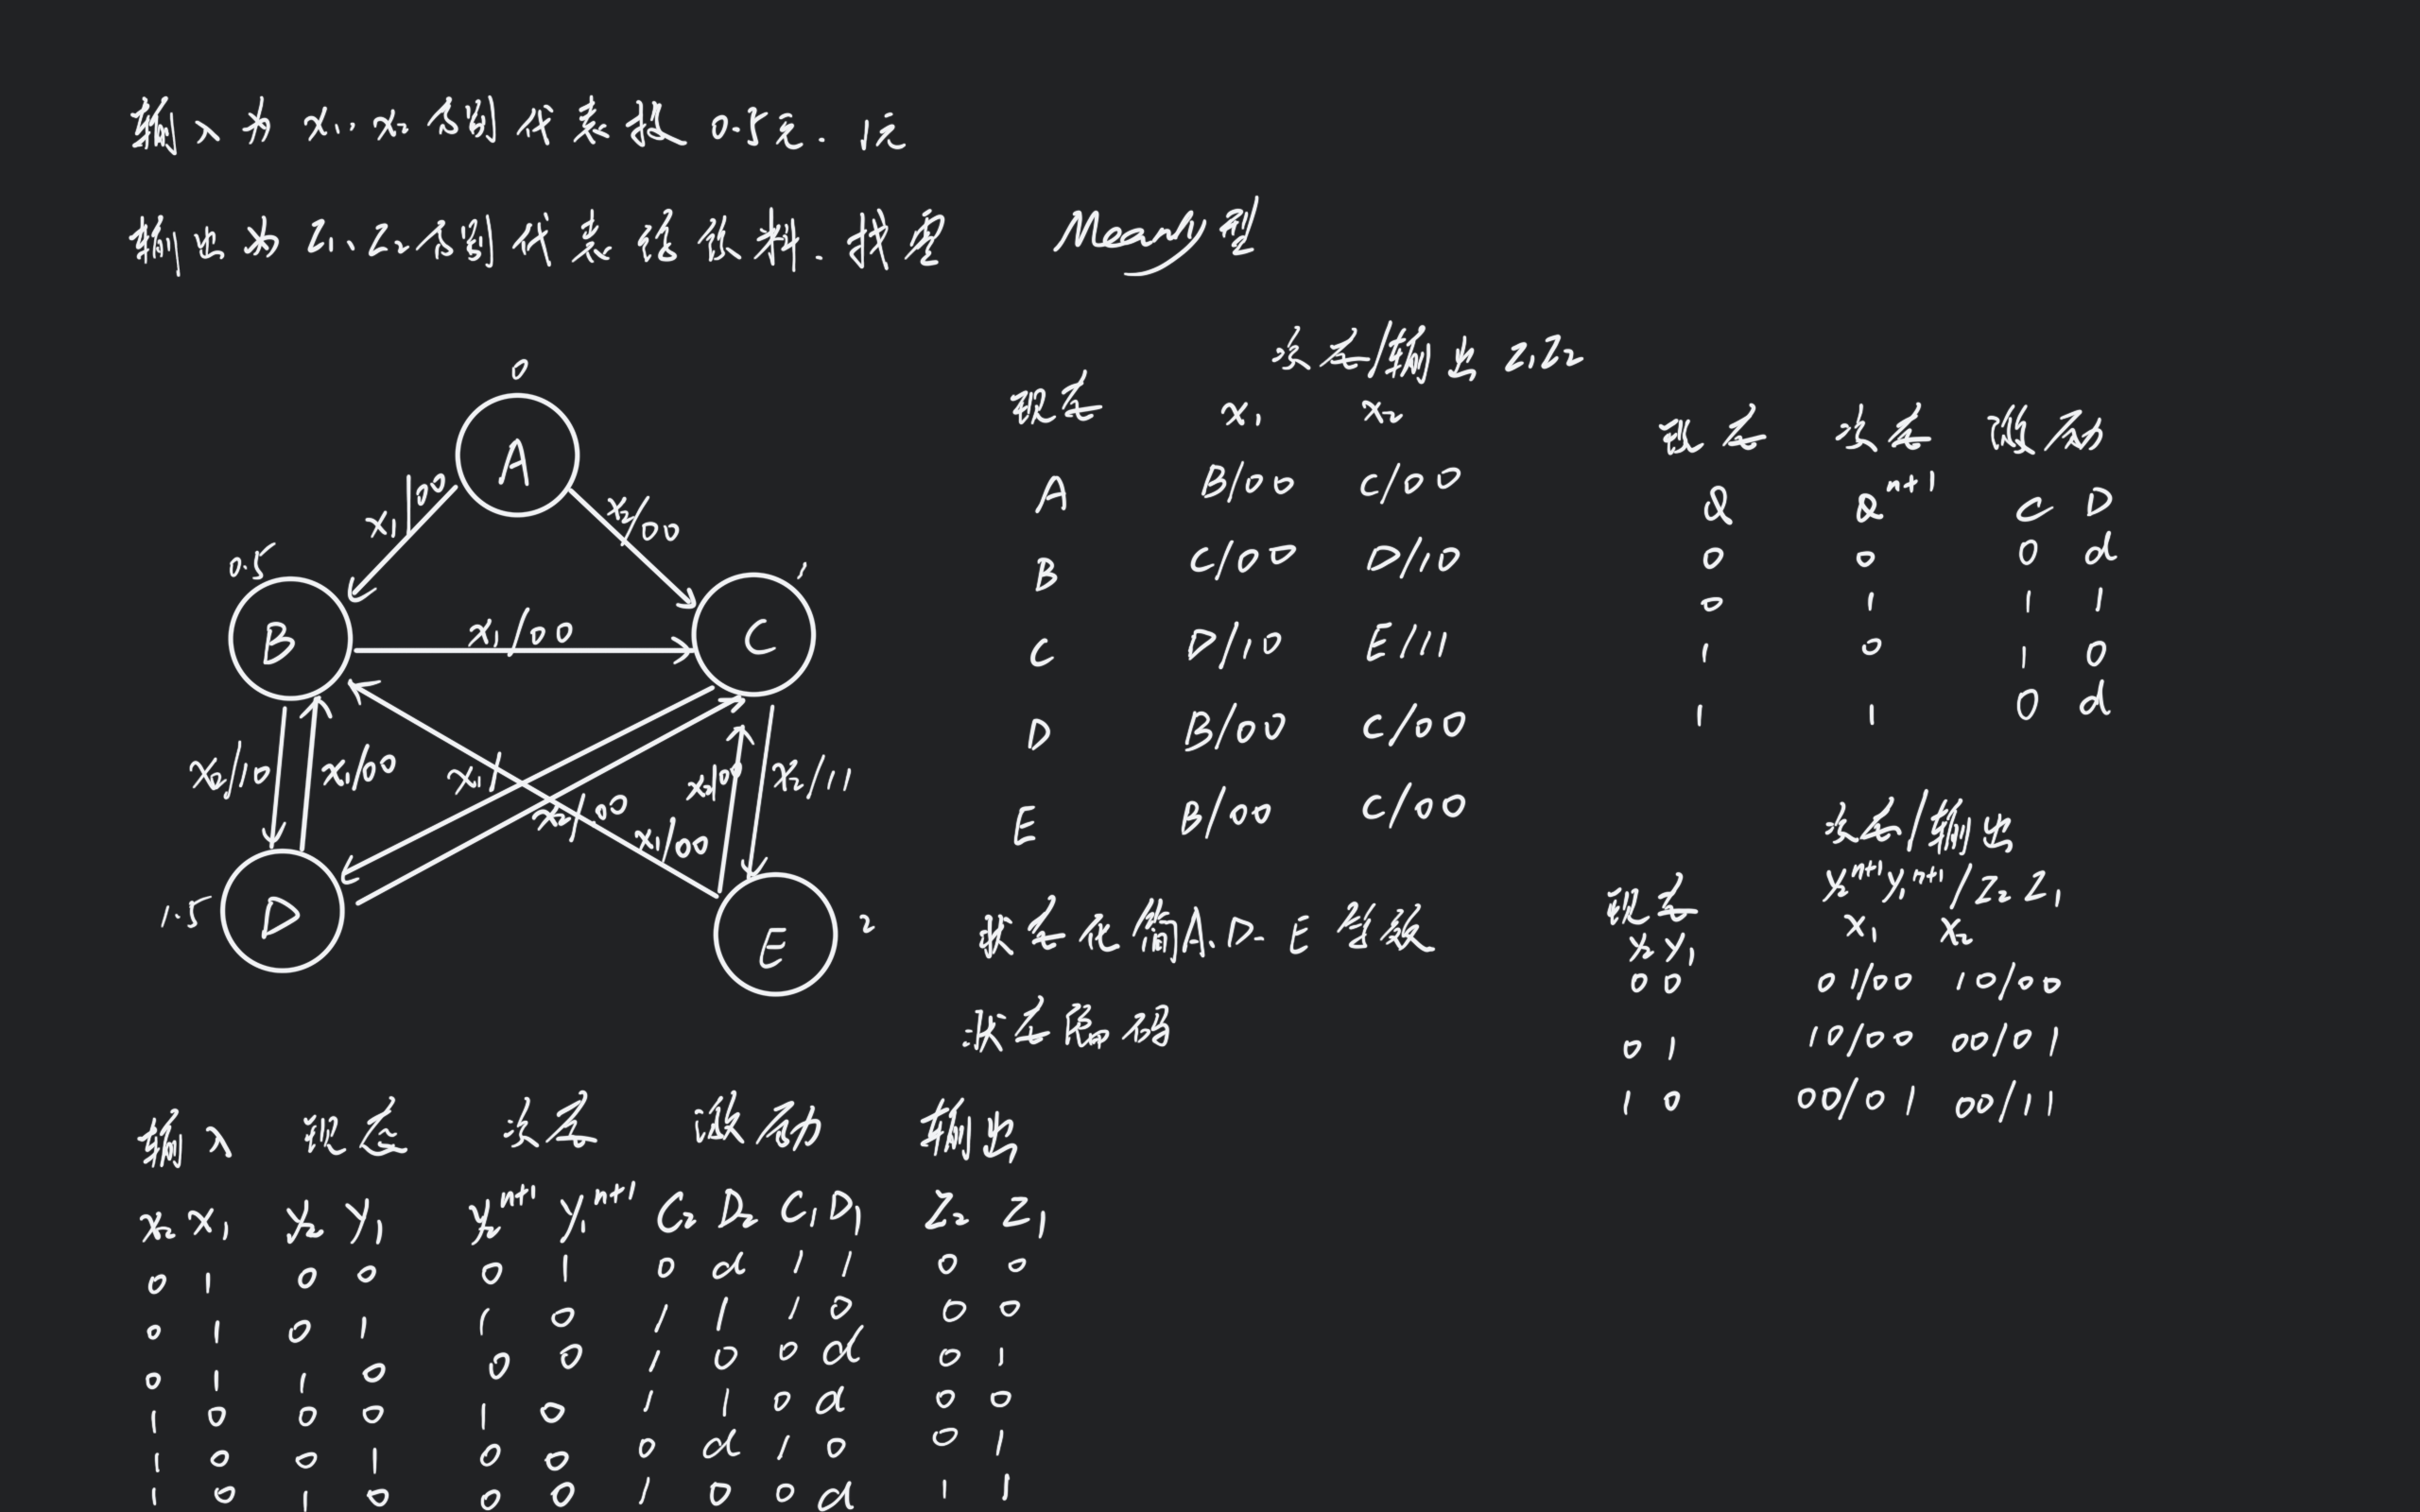 输入为 x₁、x₂ 分别代表投 0.5元、1元
输出为 Z₁、Z₂ 分别代表给饮料、找零 Mearly型
0
A
x₁/00
x₂/00
0.5
B
x₁/00
1
C
x₂/10
x₁/00
x₁/
x₂/00
x₁/00
x₂/00
x₂/11
1.5
D
E
2
次态/输出 Z₁Z₂
现态 x₁ x₂
A B/00 C/00
B C/00 D/10
C D/10 E/11
D B/00 C/00
E B/00 C/00
状态化简 A、D、E 等效
状态编码
现态 次态 激励
Q Qⁿ⁺¹ C D
0 0 0 d
0 1 1 1
1 0 1 0
1 1 0 d
次态/输出
现态 y₂ⁿ⁺¹y₁ⁿ⁺¹/Z₂Z₁
y₂y₁ x₁ x₂
00 01/00 10/00
01 10/00 00/01
10 00/01 00/11
输入 现态 次态 激励 输出
x₂ x₁ y₂ y₁ y₂ⁿ⁺¹ y₁ⁿ⁺¹ C₂ D₂ C₁ D₁ Z₂ Z₁
0 1 0 0 0 1 0 d 1 1 0 0
0 1 0 1 1 0 1 1 1 0 0 0
0 1 1 0 0 0 1 0 0 d 0 1
1 0 0 0 1 0 1 1 0 d 0 0
1 0 0 1 0 0 0 d 1 0 0 1
1 0 1 0 0 0 1 0 0 d 1 1